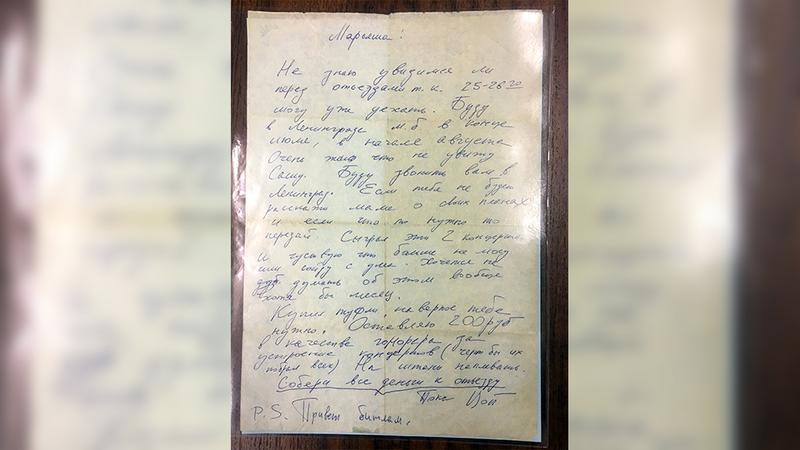 Марьяша!
Не знаю увидимся ли
перед отъездами т.к. 25-26го
могу уже уехать. Буду
в Ленинграде м.б в конце
июле, в начале августа
Очень жаль что не увижу
Сашу. Буду звонить вам в
Ленинград. Если тебе не будет
расскажи маме о своих планах
и если что-то нужно то
передай. Сыграл эти 2 концерта
и чувствую что больше не могу
или сойду с ума. Хочется не
думать об этом вообще
хотя бы месяц.
Купил туфли, наверное тебе
нужно. Оставляю 200руб
в качестве гонорара за
устроение концертов (черт бы их
всех) На штаны наплевать.
Собери все деньги к отъезду
Пока Цой
P.S. Привет битлам.